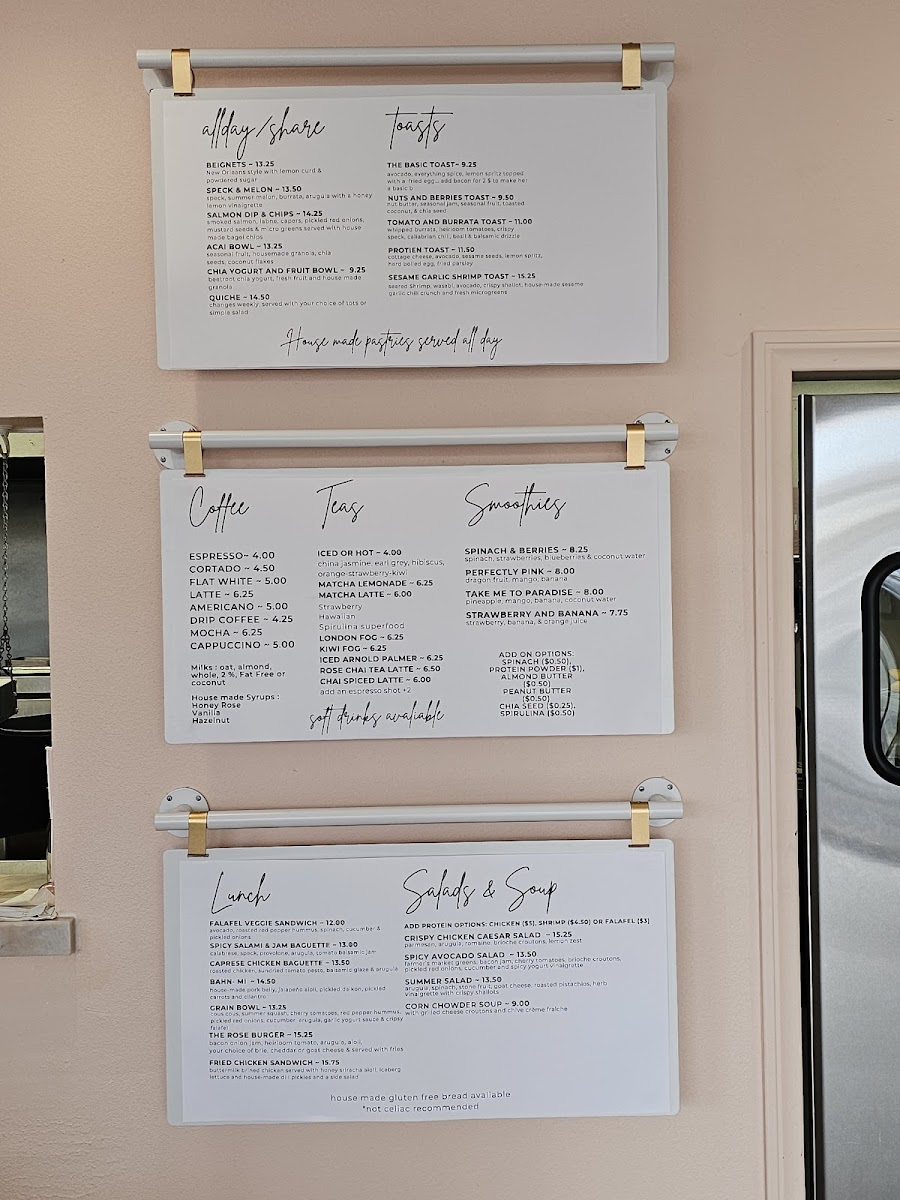 allday/share
BEIGNETS ~ 13.25
New Orleans style with lemon curd &
powdered sugar
SPECK & MELON ~ 13.50
speck, summer melon, burrata, arugula with a honey
lemon vinaigrette
SALMON DIP & CHIPS ~ 14.25
smoked salmon, labne, capers, pickled red onions,
mustard seeds & micro greens served with house
made bagel chips
ACAI BOWL ~ 13.25
seasonal fruit, housemade granola, chia
seeds, coconut flakes
CHIA YOGURT AND FRUIT BOWL ~ 9.25
beetroot chia yogurt, fresh fruit and house made
granola
QUICHE ~ 14.50
changes weekly, served with your choice of tots or
simple salad
toasts
THE BASIC TOAST~ 9.25
avocado, everything spice, lemon spritz topped
with a fried egg... add bacon for 2 $ to make her
a basic b
NUTS AND BERRIES TOAST ~ 9.50
nut butter, seasonal jam, seasonal fruit, toasted
coconut, & chia seed
TOMATO AND BURRATA TOAST ~ 11.00
whipped burrata, heirloom tomatoes, crispy
speck, calabrian chili, basil & balsamic drizzle
PROTIEN TOAST ~ 11.50
cottage cheese, avocado, sesame seeds, lemon spritz,
hard boiled egg, fried parsley
SESAME GARLIC SHRIMP TOAST ~ 15.25
seared Shrimp, wasabi, avocado, crispy shallot, house-made sesame
garlic chili crunch and fresh microgreens
House made pastries served all day
Coffee
ESPRESSO~ 4.00
CORTADO ~ 4.50
FLAT WHITE ~ 5.00
LATTE ~ 6.25
AMERICANO ~ 5.00
DRIP COFFEE ~ 4.25
MOCHA ~ 6.25
CAPPUCCINO ~ 5.00
Milks : oat, almond,
whole, 2 %, Fat Free or
coconut
House made Syrups :
Honey Rose
Vanilla
Hazelnut
Teas
ICED OR HOT ~ 4.00
china jasmine, earl grey, hibiscus,
orange-strawberry-kiwi
MATCHA LEMONADE ~ 6.25
MATCHA LATTE ~ 6.00
Strawberry
Hawaiian
Spirulina superfood
LONDON FOG ~ 6.25
KIWI FOG ~ 6.25
ICED ARNOLD PALMER ~ 6.25
ROSE CHAI TEA LATTE ~ 6.50
CHAI SPICED LATTE ~ 6.00
add an espresso shot +2
soft drinks avaliable
Smoothies
SPINACH & BERRIES ~ 8.25
spinach, strawberries, blueberries & coconut water
PERFECTLY PINK ~ 8.00
dragon fruit, mango, banana
TAKE ME TO PARADISE ~ 8.00
pineapple, mango, banana, coconut water
STRAWBERRY AND BANANA ~ 7.75
strawberry, banana, & orange juice
ADD ON OPTIONS:
SPINACH ($0.50),
PROTEIN POWDER ($1),
ALMOND BUTTER
($0.50)
PEANUT BUTTER
($0.50)
CHIA SEED ($0.25),
SPIRULINA ($0.50)
Lunch
FALAFEL VEGGIE SANDWICH ~ 12.00
avocado, roasted red pepper hummus, spinach, cucumber &
pickled onions
SPICY SALAMI & JAM BAGUETTE ~ 13.00
calabrese, speck, provolone, arugula, tomato balsamic jam
CAPRESE CHICKEN BAGUETTE ~ 13.50
roasted chicken, sundried tomato pesto, balsamic glaze & arugula
BAHN- MI ~ 14.50
house-made pork belly, jalapeño aioli, pickled daikon, pickled
carrots and cilantro
GRAIN BOWL ~ 13.25
cous cous, summer squash, cherry tomatoes, red pepper hummus,
pickled red onions, cucumber, arugula, garlic yogurt sauce & crispy
falafel
THE ROSE BURGER ~ 15.25
bacon onion jam, heirloom tomato, arugula, aioli,
your choice of brie, cheddar or goat cheese & served with fries
FRIED CHICKEN SANDWICH ~ 15.75
buttermilk brined chicken served with honey sriracha aioli, iceberg
lettuce and house-made dill pickles and a side salad
Salads & Soup
ADD PROTEIN OPTIONS: CHICKEN ($5), SHRIMP ($4.50) OR FALAFEL ($3)
CRISPY CHICKEN CAESAR SALAD ~ 15.25
parmesan, arugula, romaine, brioche croutons, lemon zest
SPICY AVOCADO SALAD ~ 13.50
farmer's market greens, bacon jam, cherry tomatoes, brioche croutons,
pickled red onions, cucumber and spicy yogurt vinaigrette
SUMMER SALAD ~ 13.50
arugula, spinach, stone fruit, goat cheese, roasted pistachios, herb
vinaigrette with crispy shallots
CORN CHOWDER SOUP ~ 9.00
with grilled cheese croutons and chive crème fraîche
house made gluten free bread available
*not celiac recommended